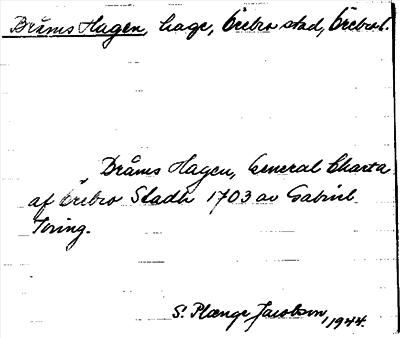 Bråms Hagen, hage, Örebro stad, Örebro l.
Bråms Hagen, General Charta
af Örebro Stadh 1703 av Gabriel
Toring.
S. Plænge Jacobson, 1944.